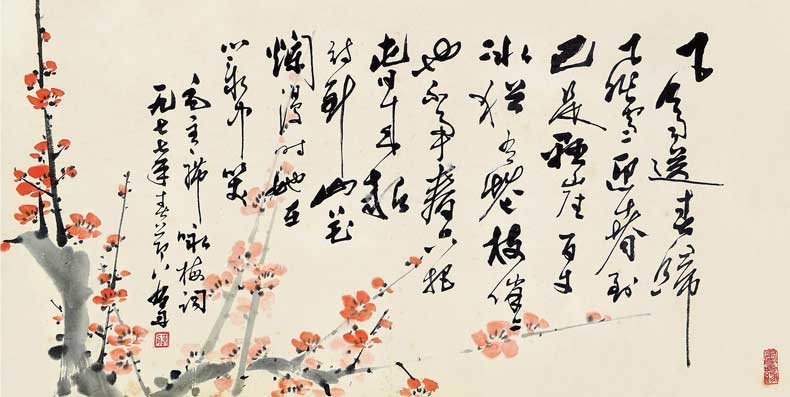 风雨送春歸
飞雪迎春到
已是悬崖百丈
冰犹有花枝俏々
也不争春只把
春来报
待到山花
爛漫时她在
丛中笑
毛主席咏梅词
一九七七年春节